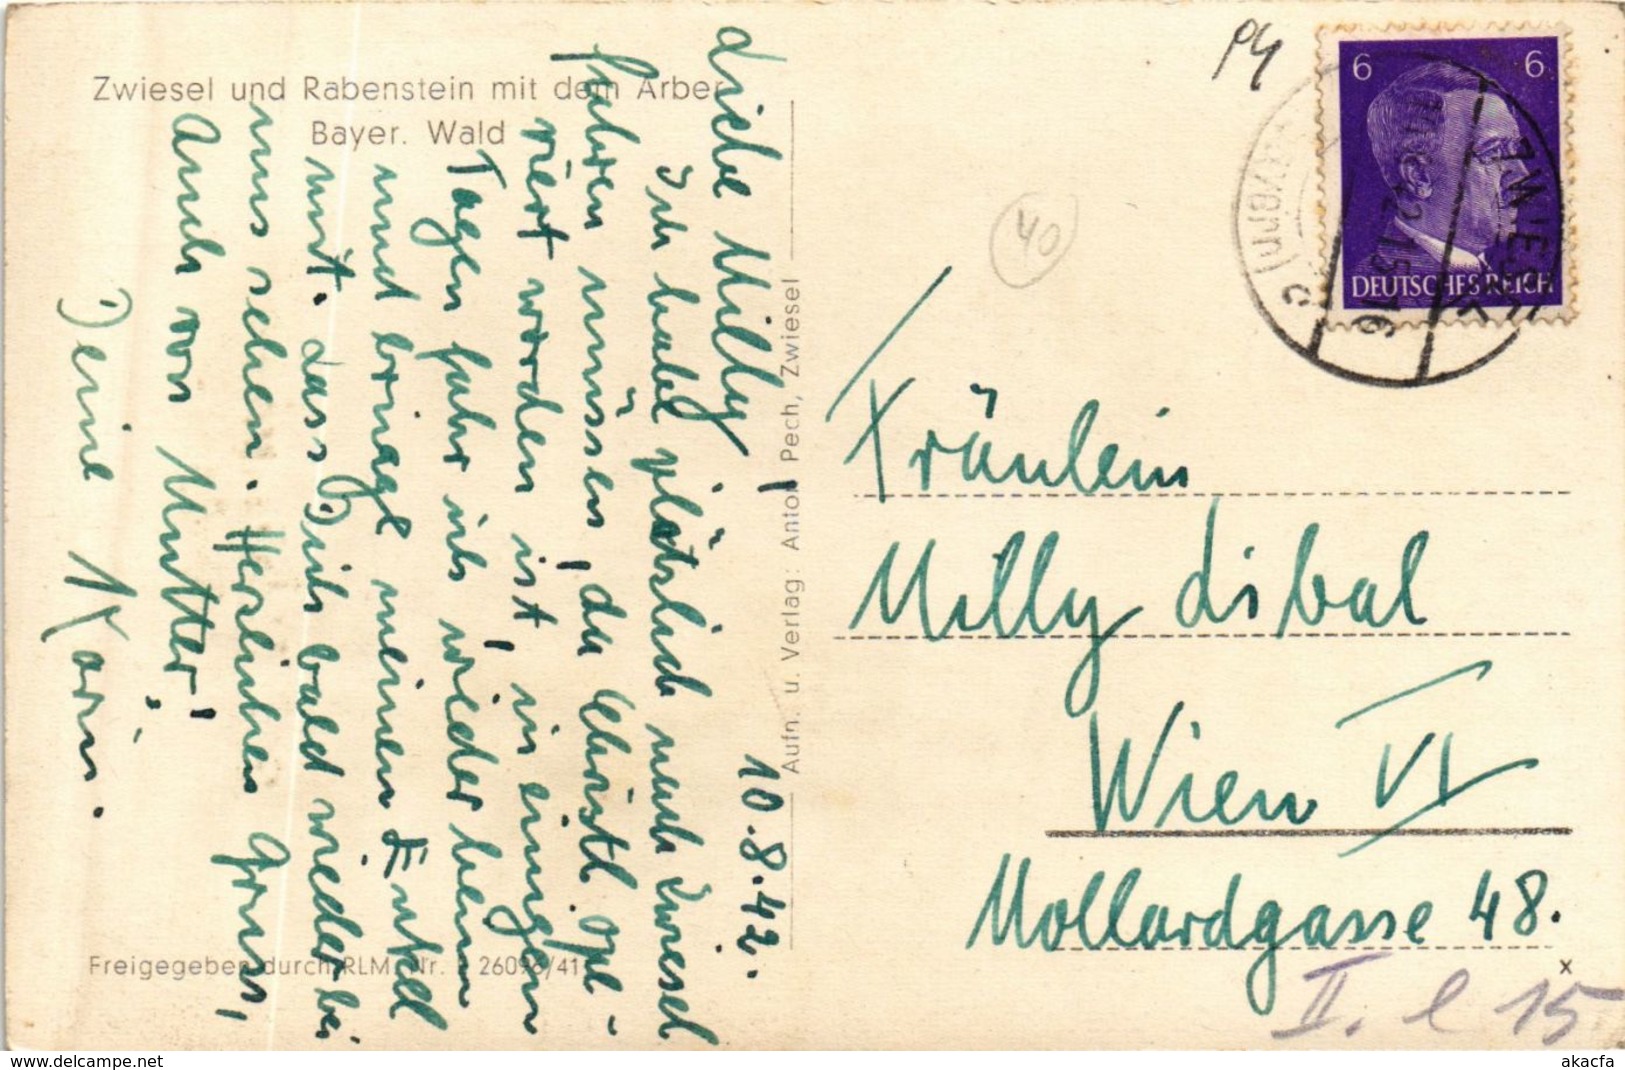 Zwiesel und Rabenstein mit dem Arber
Bayer. Wald
10.8.42.
Liebe Milly!
Ich habe plötzlich nach Zwiesel
fahren müssen, da Christl ope-
riert worden ist, in einigen
Tagen fahr ich wieder heim
und bringe meinen Enkel
mit. dass Dich bald wieder bei
uns sehen. Herzlichen Gruss,
Auch von Mutter!
Deine Karin.
Aufn. u. Verlag: Anton Pech, Zwiesel
Freigegeben durch RLM. Nr. 26096/41
P4
40
6 6
DEUTSCHES REICH
ZWIESEL
(Bayern)
42 15-16
c
Fräulein
Milly Libal
Wien VI
Mollardgasse 48.
x
II. l 15
www.delcampe.net
akacfa